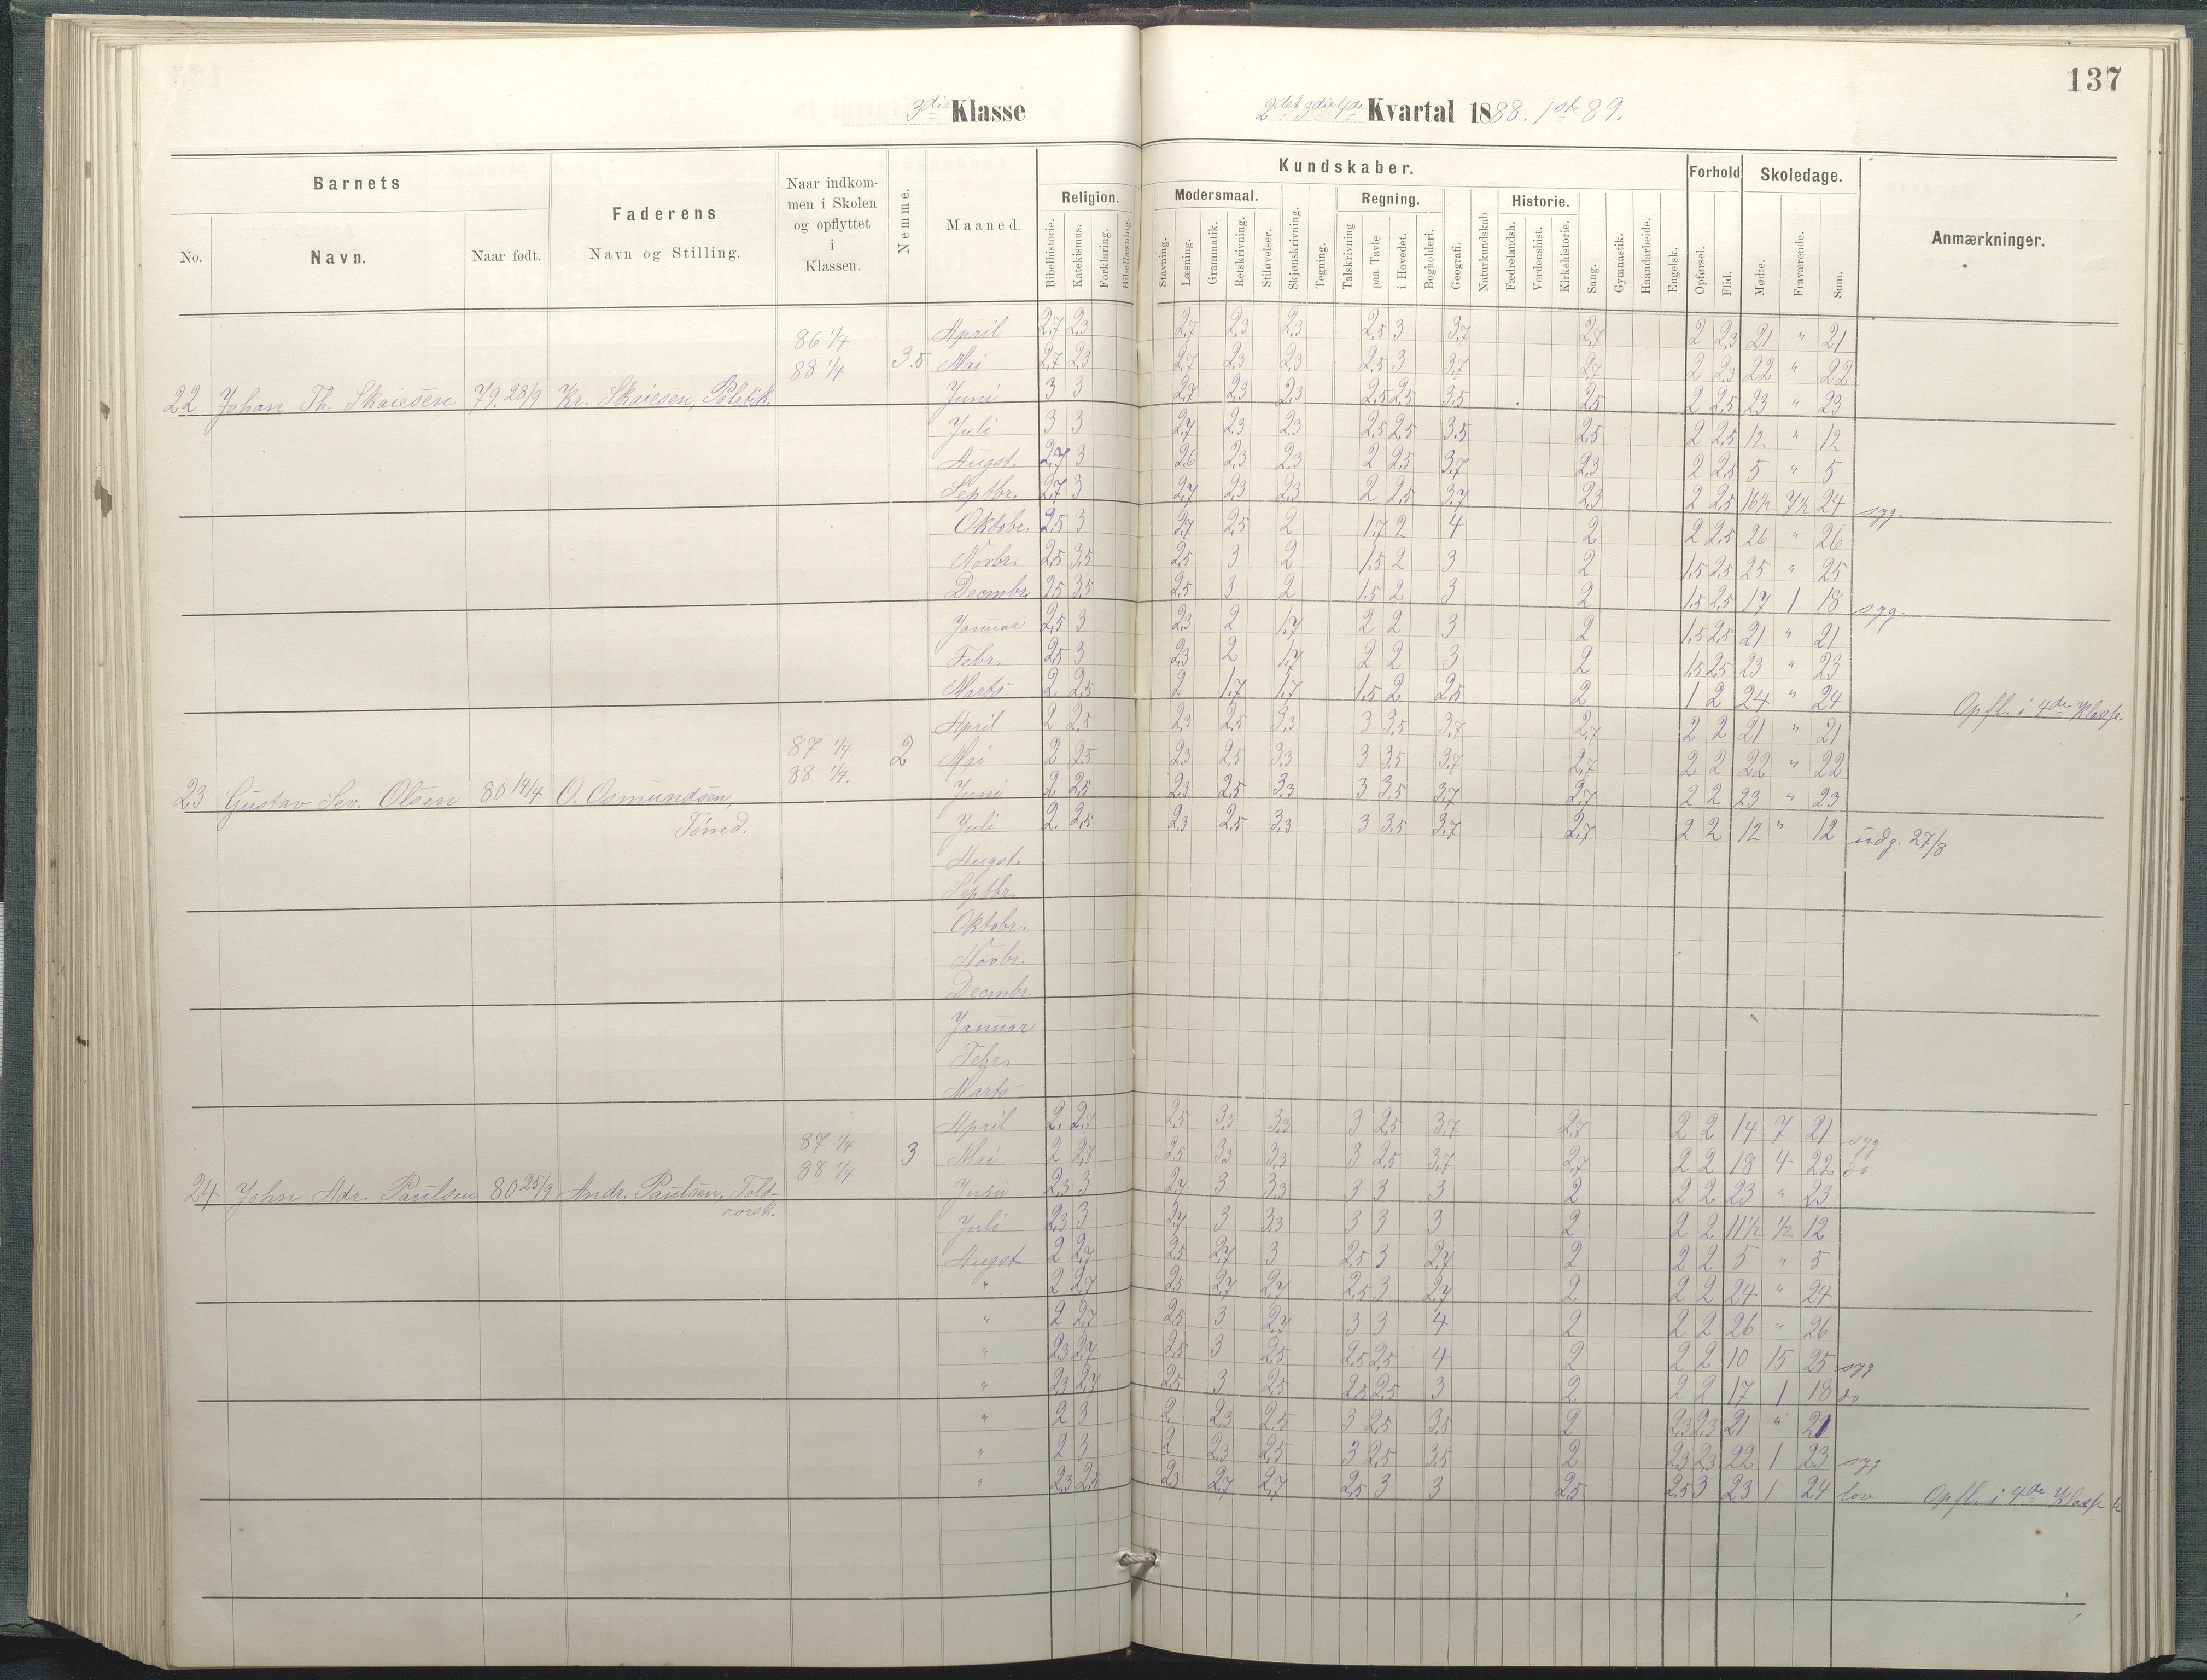 137
3die Klasse 2det 3die 4de Kvartal 1888. 1ste 89.
Barnets
No. Navn. Naar født.
Faderens
Navn og Stilling.
Naar indkom-
men i Skolen
og opflyttet
i
Klassen.
Nemme.
Maaned.
Kundskaber.
Religion.
Bibelhistorie. Katekismus. Forklaring. Bibellæsning.
Modersmaal.
Stavning. Læsning. Grammatik. Retskrivning. Stiløvelser. Skjønskrivning. Tegning.
Regning.
Talskrivning paa Tavle i Hovedet. Bogholderi. Geografi. Naturkundskab
Historie.
Fædrelandsh. Verdenshist. Kirkehistorie. Sang. Gymnastik. Haandarbeide. Engelsk.
Forhold
Opførsel. Flid.
Skoledage.
Mødte. Fraværende. Sum.
Anmærkninger.
22 Johan Th. Skaiesen 79. 28/9 Kr. Skaiesen, Politik. 86 1/4 88 1/4 3.5
April 2,7 2,3 2,7 2,3 2,3 2,5 3 3,7 2,7 2 2,3 21 " 21
Mai 2,7 2,3 2,7 2,3 2,3 2,5 3 3,7 2,7 2 2,3 22 " 22
Juni 3 3 2,7 2,3 2,3 2,5 2,5 3,5 2,5 2 2,5 23 " 23
Juli 3 3 2,7 2,3 2,3 2,5 2,5 3,5 2,5 2 2,5 12 " 12
Augst. 2,7 3 2,6 2,3 2,3 2 2,5 3,7 2,3 2 2,5 5 " 5
Septbr. 2,7 3 2,7 2,3 2,3 2 2,5 3,7 2,3 2 2,5 16 1/2 7 1/2 24 syg.
Oktobr. 2,5 3 2,7 2,5 2 1,7 2 4 2 2 2,5 26 " 26
Novbr. 2,5 3,5 2,5 3 2 1,5 2 3 2 1,5 2,5 25 " 25
Decmbr. 2,5 3,5 2,5 3 2 1,5 2 3 2 1,5 2,5 17 1 18 syg.
Januar 2,5 3 2,3 2 1,7 2 2 3 2 1,5 2,5 21 " 21
Febr. 2,5 3 2,3 2 1,7 2 2 3 2 1,5 2,5 23 " 23
Marts 2 2,5 2 1,7 1,7 1,5 2 2,5 2 1 2 24 " 24 Opfl. i 4de Klasse
23 Gustav Sev. Olsen 80 14/4 O. Osmundsen,
Tømd.
87 1/4 88 1/4. 2
April 2 2,5 2,3 2,5 3,3 3 3,5 3,7 2,7 2 2 21 " 21
Mai 2 2,5 2,3 2,5 3,3 3 3,5 3,7 2,7 2 2 22 " 22
Juni 2 2,5 2,3 2,5 3,3 3 3,5 3,7 2,7 2 2 23 " 23
Juli 2. 2,5 2,3 2,5 3,3 3 3,5 3,7 2,7 2 2 12 " 12 udg. 27/8
Augst.
Septbr.
Oktobr.
Novbr.
Decmbr.
Januar
Febr.
Marts
24 John Adr. Paulsen 80 25/9 Andr. Paulsen, Told-
87 1/4 88 1/4 3
April 2. 2,7 2,5 3,3 3,3 3 2,5 3,7 2,7 2 2 14 7 21 syg
Mai 2 2,7 2,5 3,3 3,3 3 2,5 3,7 2,7 2 2 18 4 22 do
Juni 2,3 3 2,7 3 3,3 3 3 3 2 2 2 23 " 23
Juli 2,3 3 2,7 3 3,3 3 3 3 2 2 2 11 1/2 1/2 12
Augst 2 2,7 2,5 2,7 3 2,5 3 2,7 2 2 2 5 " 5
" 2 2,7 2,5 2,7 2,7 2,5 3 2,7 2 2 2 24 " 24
" 2 2,7 2,5 3 2,7 3 3 4 2 2 2 26 " 26
" 2,3 2,7 2,5 3 2,5 2,5 2,5 4 2 2 2 10 15 25 syg
" 2,3 2,7 2,5 3 2,5 2,5 2,5 3 2 2 2 17 1 18 do
" 2 3 2 2,3 2,5 3 2,5 3,5 2 2,3 2,3 21 " 21
" 2 3 2 2,3 2,5 3 2,5 3,5 2 2,3 2,3 22 1 23 syg
" 2,3 2,5 2,3 2,7 2,7 2,5 3 3 2,5 2,5 3 23 1 24 lov Opfl. i 4de Klasse